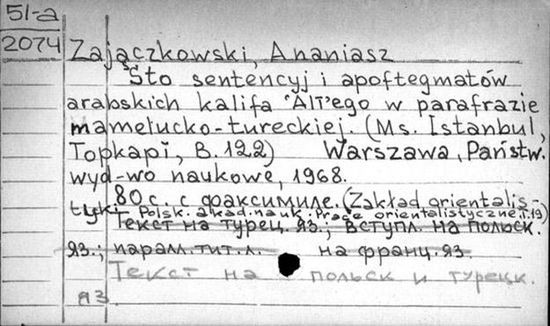 51-a
2074
Zajączkowski, Ananiasz
Sto sentencyj i apoftegmatów
arabskich kalifa 'Alī'ego w parafrazie
mamelucko-tureckiej. (Ms. Istanbul,
Topkapi, B. 122) Warszawa, Państw.
wyd-wo naukowe, 1968.
80 с. с факсимиле. (Zakład orientalis-
tyki Polsk. akad. nauk. Prace orientalistyczne. t. 19)
Текст на турец. яз.; вступл. на польск.
яз.; паралл. тит. л. на франц. яз.
Текст на польск и турецк.
яз